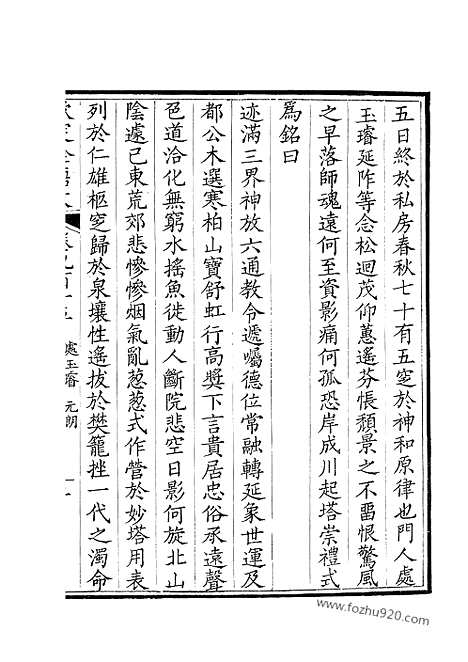 五日終於私房春秋七十有五窆於神和原律也門人處
玉璿延阼等念松迴茂仰蕙遙芬悵頽景之不畱恨驚風
之早落師魂遠何至資影痛何孤恐岸成川起塔崇禮式
爲銘曰
迹滿三界神放六通教令遞囑德位常融轉延象世運及
都公木選寒柏山寶舒虹行高奬下言貴居忠俗承遠聲
邑道洽化無窮水搖魚徙動人斷院悲空日影何旋北山
陰遽已東荒郊悲慘慘烟氣亂葱葱式作營於妙塔用表
列於仁雄柩窆歸於泉壤性遙拔於樊籠挫一代之濁命
處玉璿 元朗
www.fozhu920.com